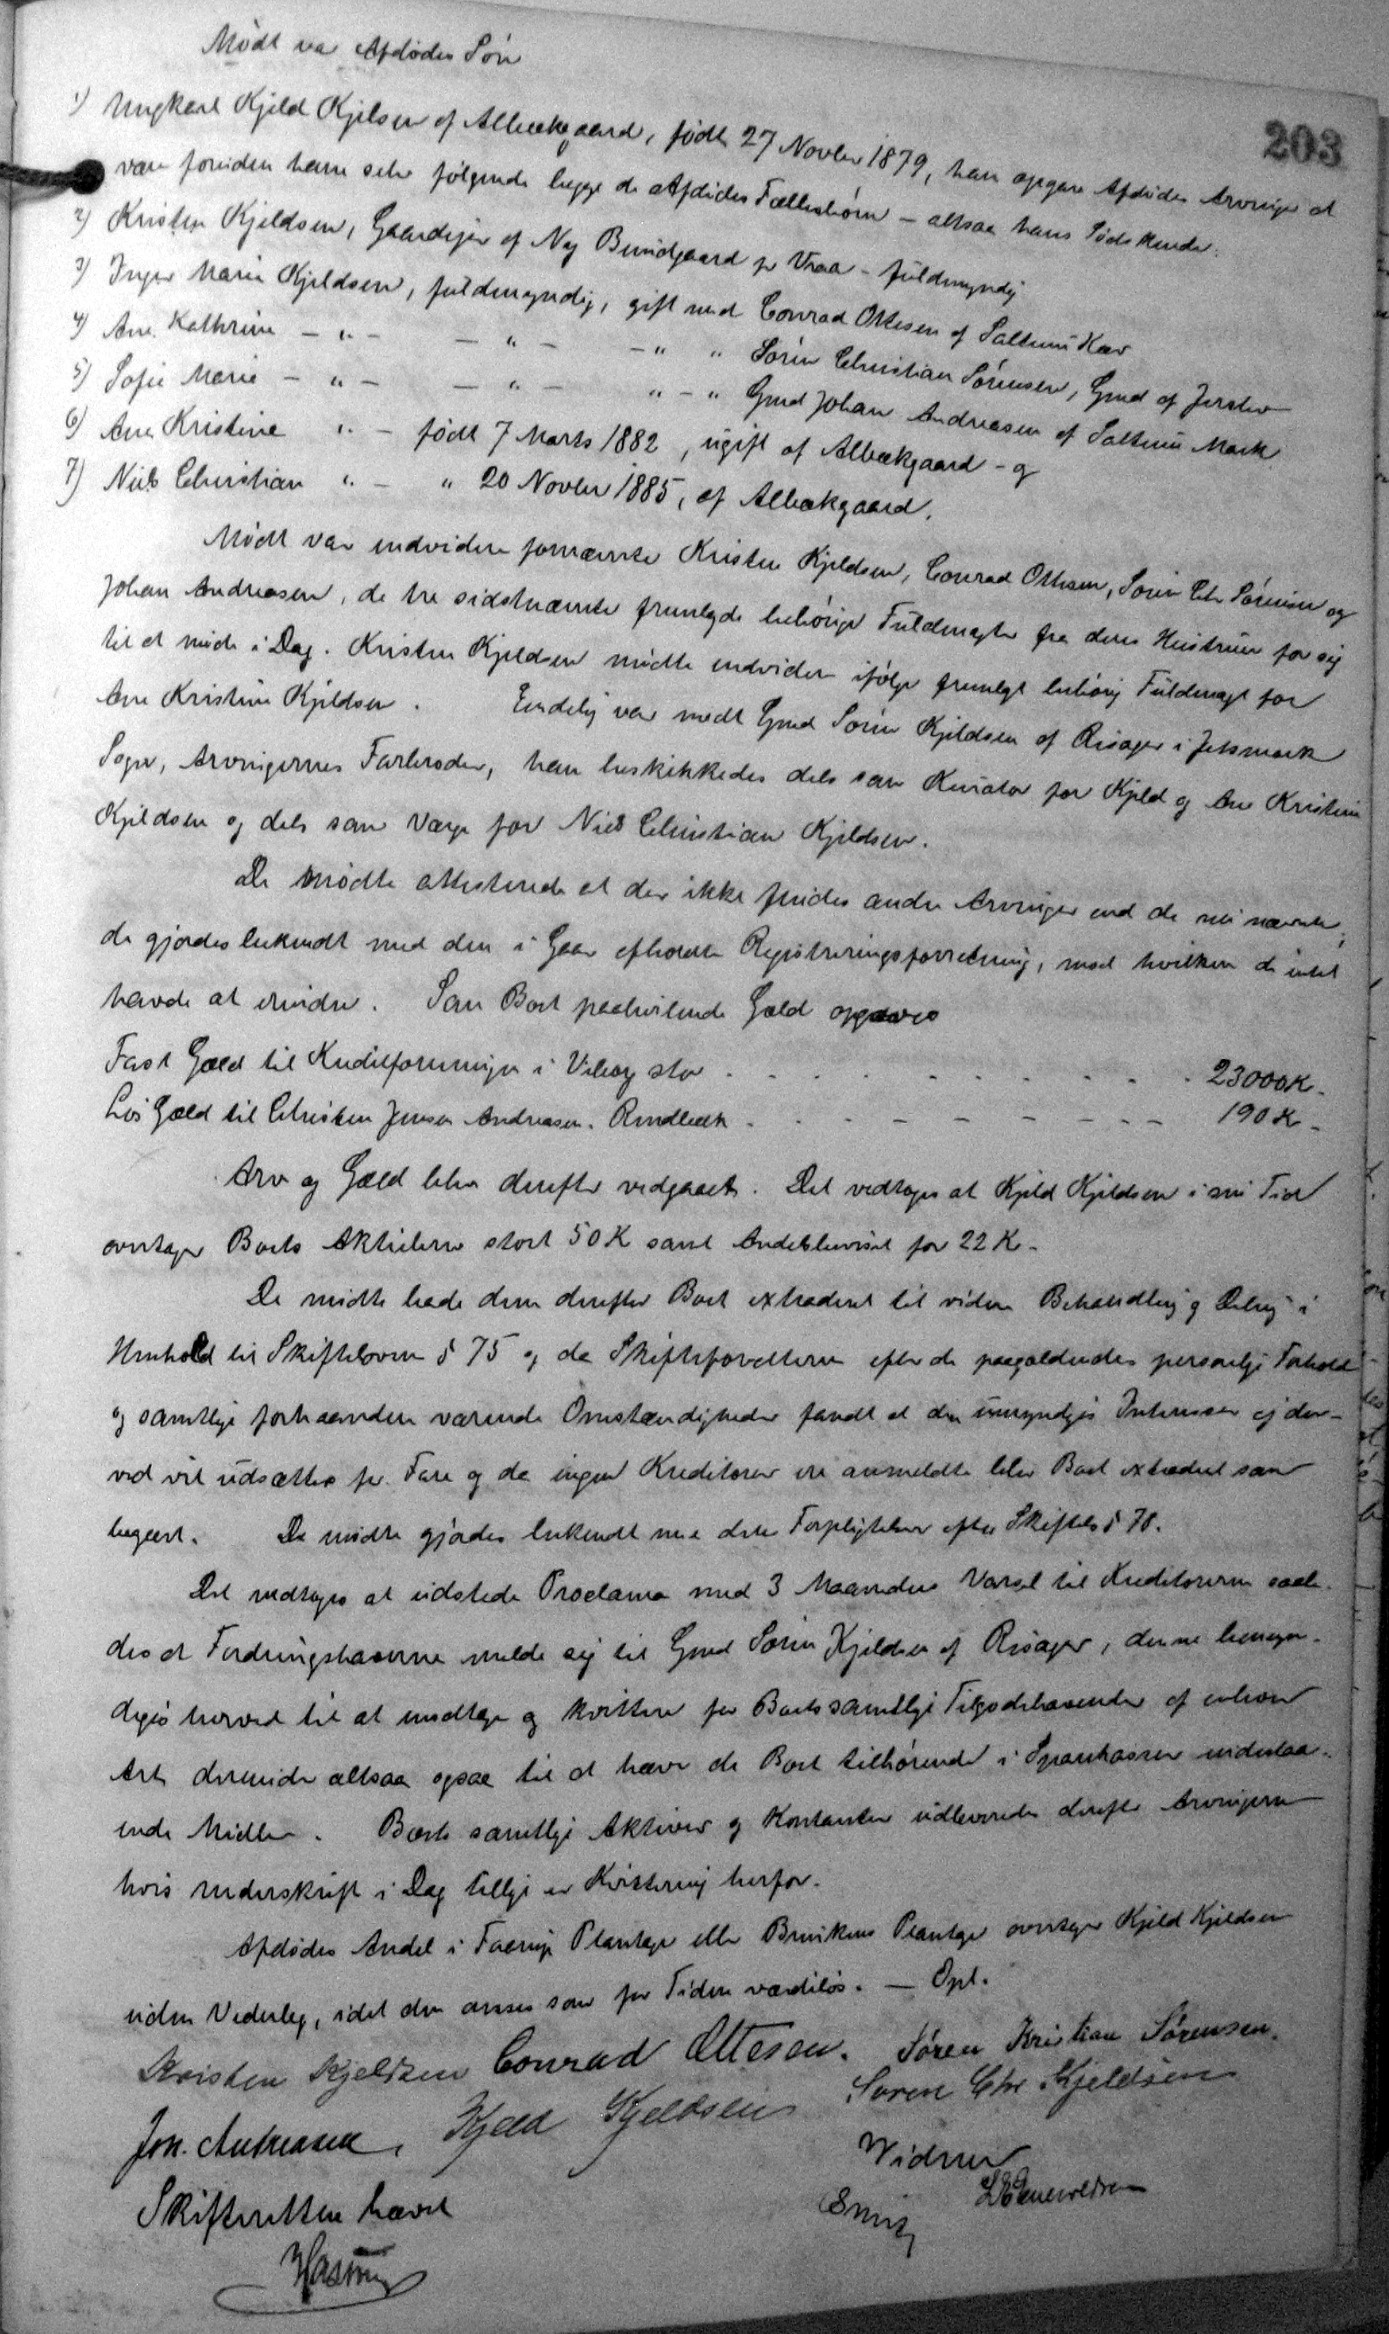 203
Mødt var Afdødes Søn
1) Ungkarl Kjeld Kjeldsen af Albækgaard, født 27 Novber 1879, han opgav Afdødes Arvinger at
være foruden ham selv følgende begge de Afdødes Fællesbørn – altsaa hans Sødskende:
2) Kristen Kjeldsen, Gaardejer af Ny Bundgaard pr Vraa – fuldmyndig
3) Inger Marie Kjeldsen, fuldmyndig, gift med Conrad Ottesen af Saltum Kær
4) Ane Kathrine – " – – " – – " " Søren Christian Sørensen, Gmd af Jerslev
5) Sofie Marie – " – – " – " – " Gmd Johan Andreasen af Saltum Mark
6) Ane Kristine " – født 7 Marts 1882, ugift af Albækgaard – og
7) Niels Christian " – " 20 Novber 1885, af Albækgaard.
Mødt var endvidere fornævnte Kristen Kjeldsen, Conrad Ottesen, Søren Chr Sørensen og
Johan Andreasen, de tre sidstnævnte fremlagde behørige Fuldmagter fra deres Hustruer for sig
til at møde i Dag. Kristen Kjeldsen mødte endvidere ifølge fremlagt behørig Fuldmagt for
Ane Kristine Kjeldsen. Endelig var mødt Gmd Søren Kjeldsen af Risager i Jetsmark
Sogn, Arvingernes Farbroder, han beskikkedes dels som Kurator for Kjeld og Ane Kristine
Kjeldsen og dels som Værge for Niels Christian Kjeldsen.
De mødte attesterede at der ikke findes andre Arvinger end de nu nævnte,
de gjordes bekendt med den i Gaar afholdte Registreringsforretning, mod hvilken de intet
havde at erindre. Som Boet paahvilende Gæld opgaves
Fast Gæld til Kreditforeningen i Viborg stor . . . . . . . . 23000 K.
Løs Gæld til Christen Jensen Andreasen, Rendbæk . . . – – – – – 190 K –
Arv og Gæld blev derefter vedgaaet. Det vedtoges at Kjeld Kjeldsen i sin Tid
overtager Boets Aktiebrev stort 50 K samt Andelsbeviset for 22 K –
De mødte bade dem derefter Boet extraderet til videre Behandling og Deling i
Henhold til Skifteloven § 75 og da Skifteforvalteren efter de paagældendes personlige Forhold
og samtlige forhaanden værende Omstændigheder fandt at den umyndiges Interesser ej der-
ved vil udsættes for Fare og da ingen Kreditorer ere anmeldte blev Boet extraderet som
begært. De mødte gjordes bekendt med deres Forpligtelser efter Skiftels § 78.
Det vedtoges at udstede Proclama med 3 Maaneders Varsel til Kreditorerne saale-
des at Fordringshaverne melde sig til Gmd Søren Kjeldsen af Risager, denne bemyn-
diges herved til at modtage og kvittere for Boets samtlige Tilgodehavender af enhver
Art, derunder altsaa ogsaa til at hæve de Boet tilhørende i Sparekasser indestaa-
ende Midler. Boets samtlige Aktiver og Kontanter udleveredes derefter Arvingerne
hvis Underskrift i Dag tillige er Kvittering herfor.
Afdødes Andel i Faarup Plantage eller Plantage overtager Kjeld Kjeldsen
uden Vederlag, idet den ansees som for Tiden værdiløs. — Opl.
Kristen Kjeldsen Conrad Ottesen. Søren Kristian Sørensen.
Joh. Andreasen, Kjeld Kjeldsen Søren Chr Kjeldsen
Vidner
Skifteretten hævet